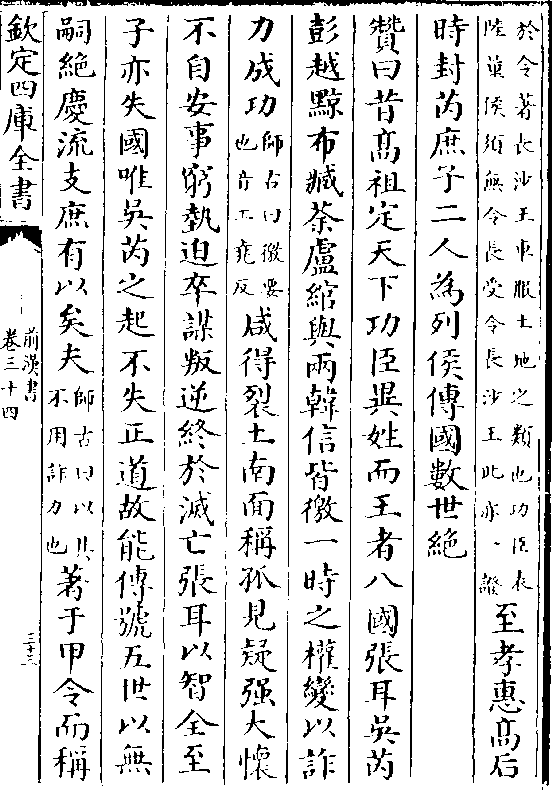 於令著長沙王車服土地之類也功臣表
陸藁侯須無令長受令長沙王此亦一證
至孝惠高后
時封芮庶子二人為列侯傳國數世絶
贊曰昔高祖定天下功臣異姓而王者八國張耳吳芮
彭越黥布臧荼盧綰與兩韓信皆徼一時之權變以詐
力成功
師古曰徼要
也音工堯反
咸得裂土南面稱孤見疑强大懷
不自安事窮埶迫卒謀叛逆終於滅亡張耳以智全至
子亦失國唯吳芮之起不失正道故能傳號五世以無
嗣絶慶流支庶有以矣夫
師古曰以其
不用詐力也
著于甲令而稱
欽定四庫全書
前漢書
卷三十四
三十三